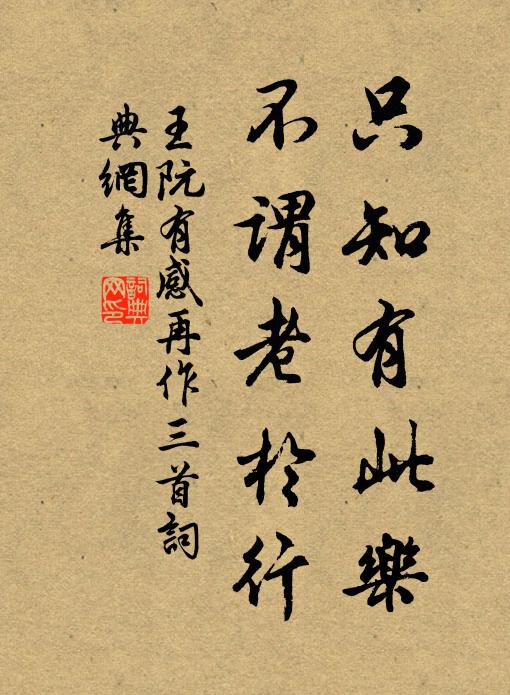 只知有此樂
不謂老於行
王阮有感再作三首詞
典網集
詞典網印